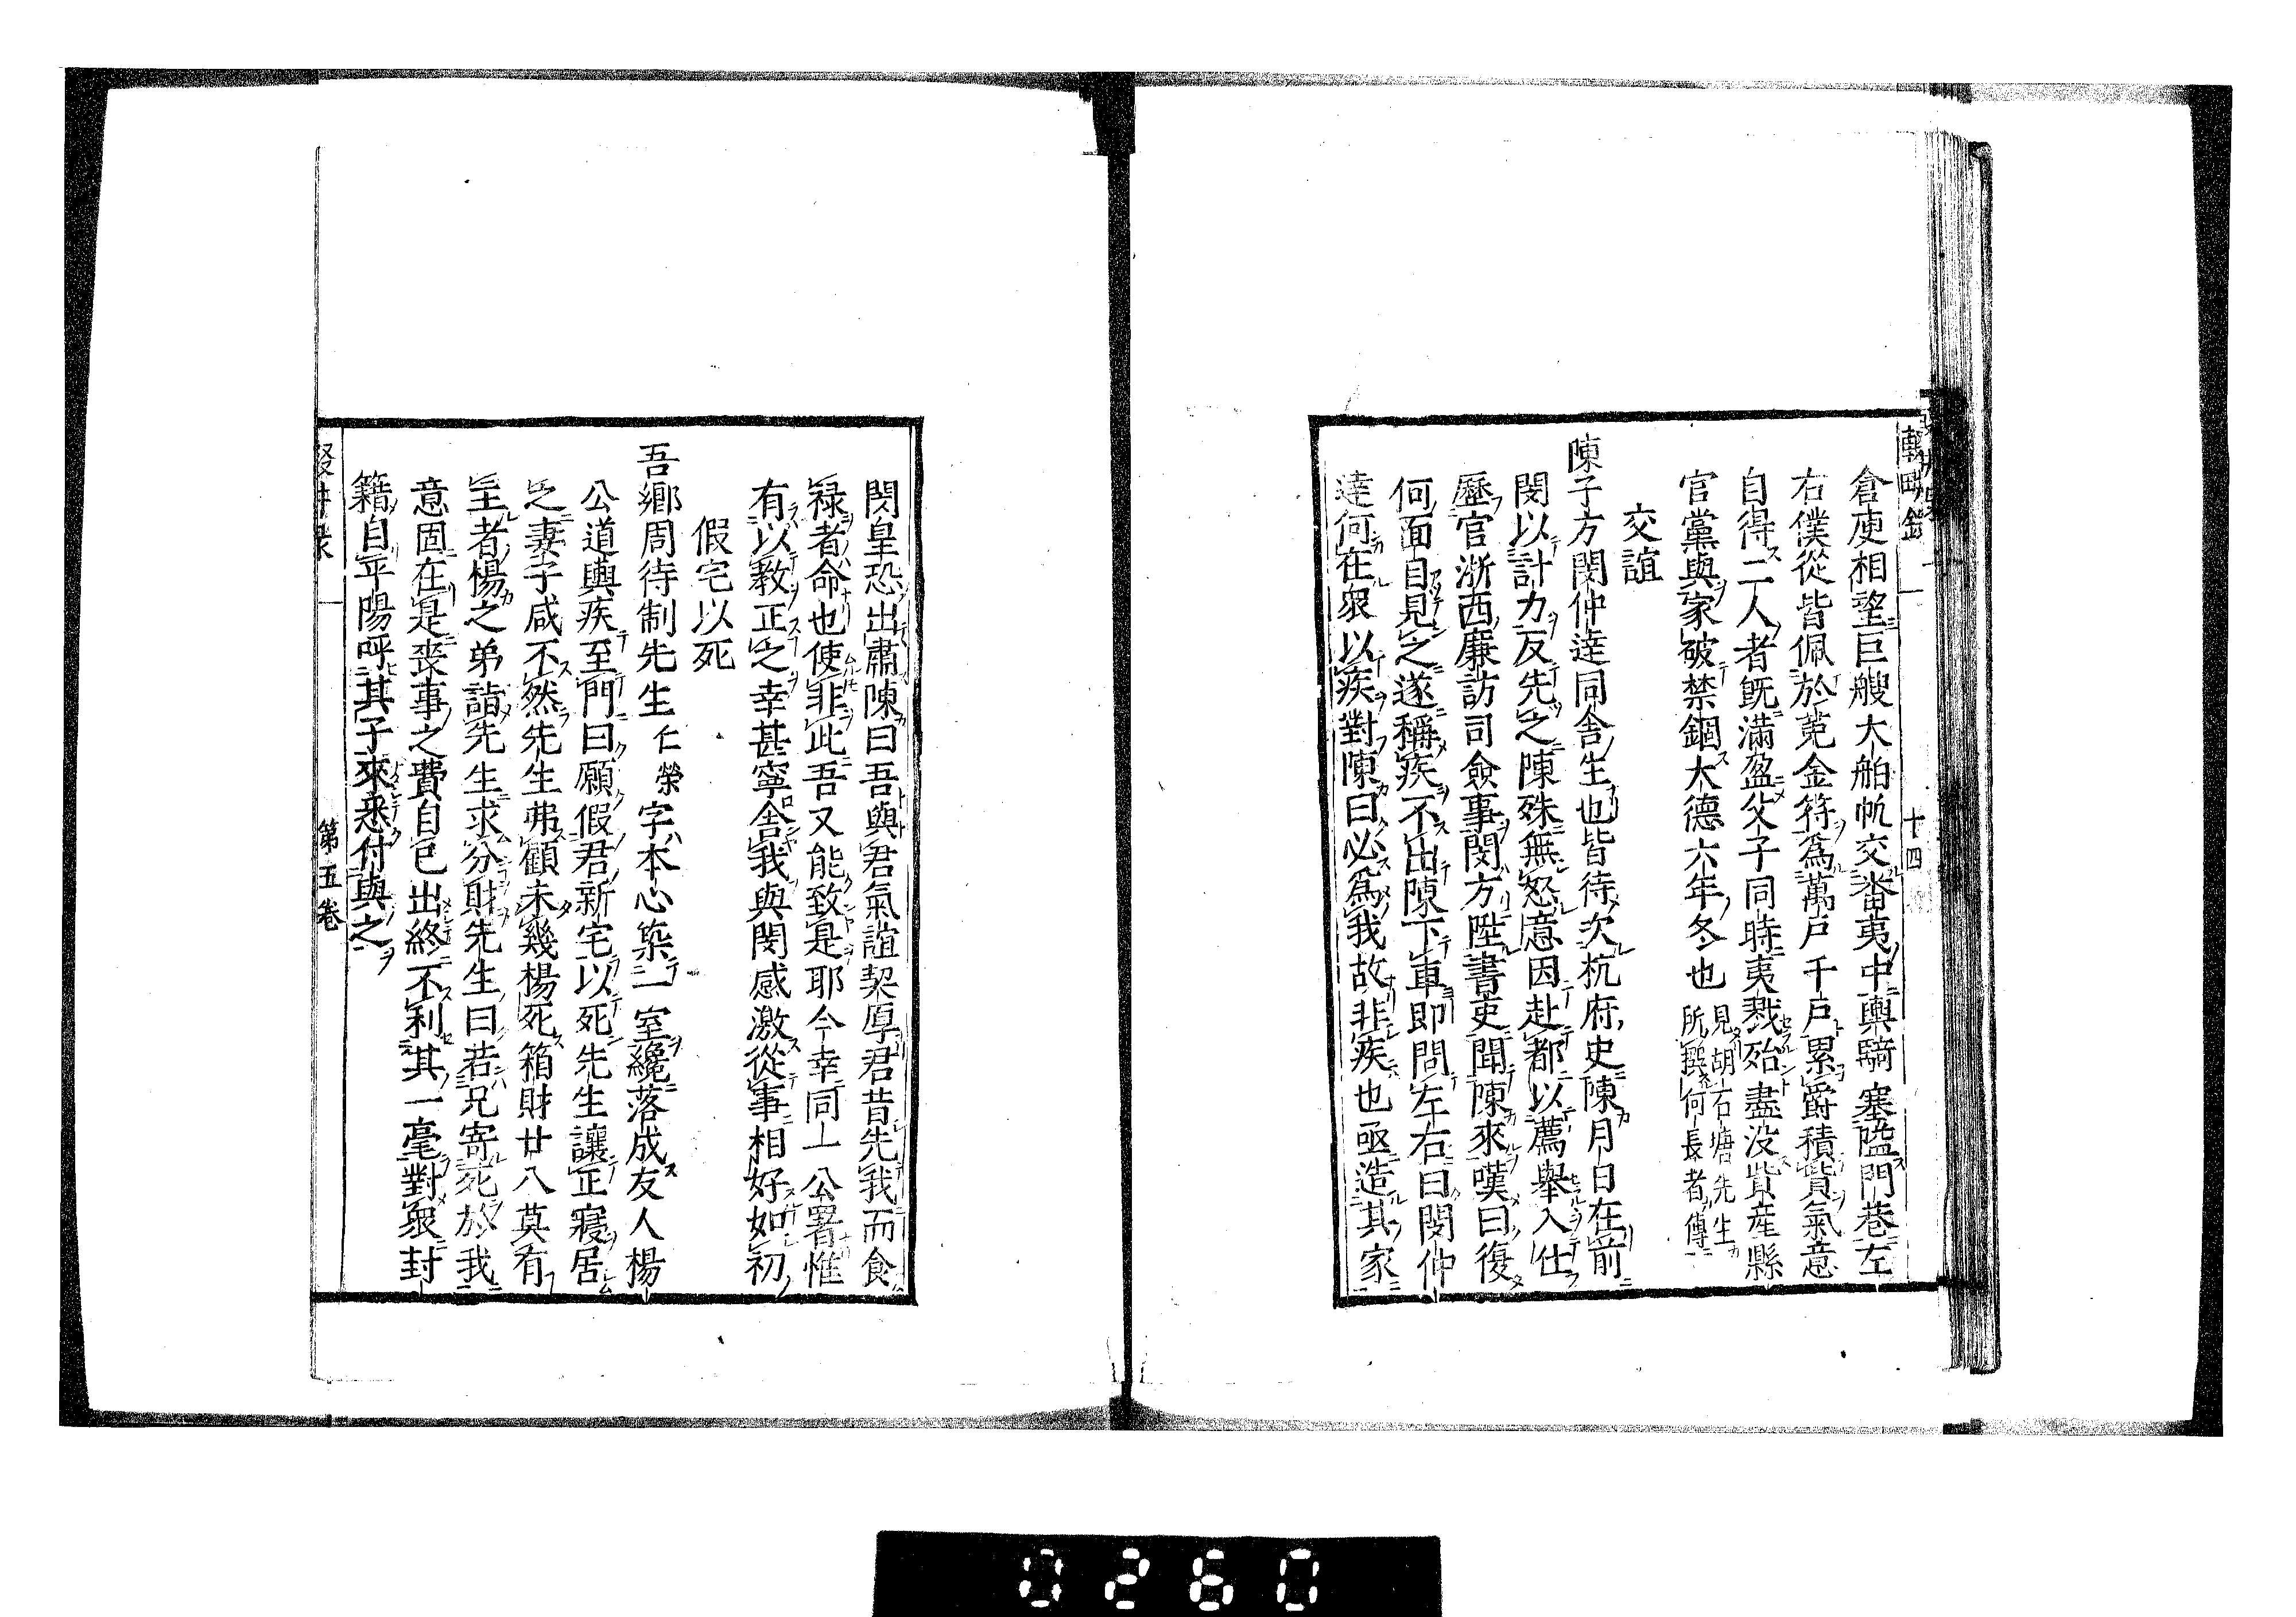 輟畊録
十四
倉庾相望巨艘大舶帆交番夷中輿騎塞隘門巷左
右僕從皆佩於菟金符爲萬戸千戸累爵積貲氣意
自得二人者既滿盈父子同時夷戮殆盡没貲産縣
官黨與家破禁錮大德六年冬也見胡石塘先生
所撰何長者傳
交誼
陳子方閔仲達同舎生也皆待次杭府史陳月日在前
閔以計力反先之陳殊無怒意因赴都以薦舉入仕
歷官浙西廉訪司僉事閔方陞書吏聞陳來嘆曰復
何面目見之遂稱疾不出陳下車即問左右曰閔仲
達何在衆以疾對陳曰必爲我故非疾也亟造其家
閔皇恐出肅陳曰吾與君氣誼契厚君昔先我而食
禄者命也使非此吾又能致是耶今幸同一公署惟
有以教正之幸甚寧舎我與閔感激從事相好如初
假宅以死
吾鄉周待制先生仁榮字本心築一室纔落成友人楊
公道輿疾至門曰願假君新宅以死先生讓正寢居
之妻子咸不然先生弗顧未幾楊死箱財廿八莫有
主者楊之弟詣先生求分財先生曰若兄寄死於我
意固在是喪事之費自己出終不利其一毫對衆封
籍自平陽呼其子來悉付與之
第五卷
0260